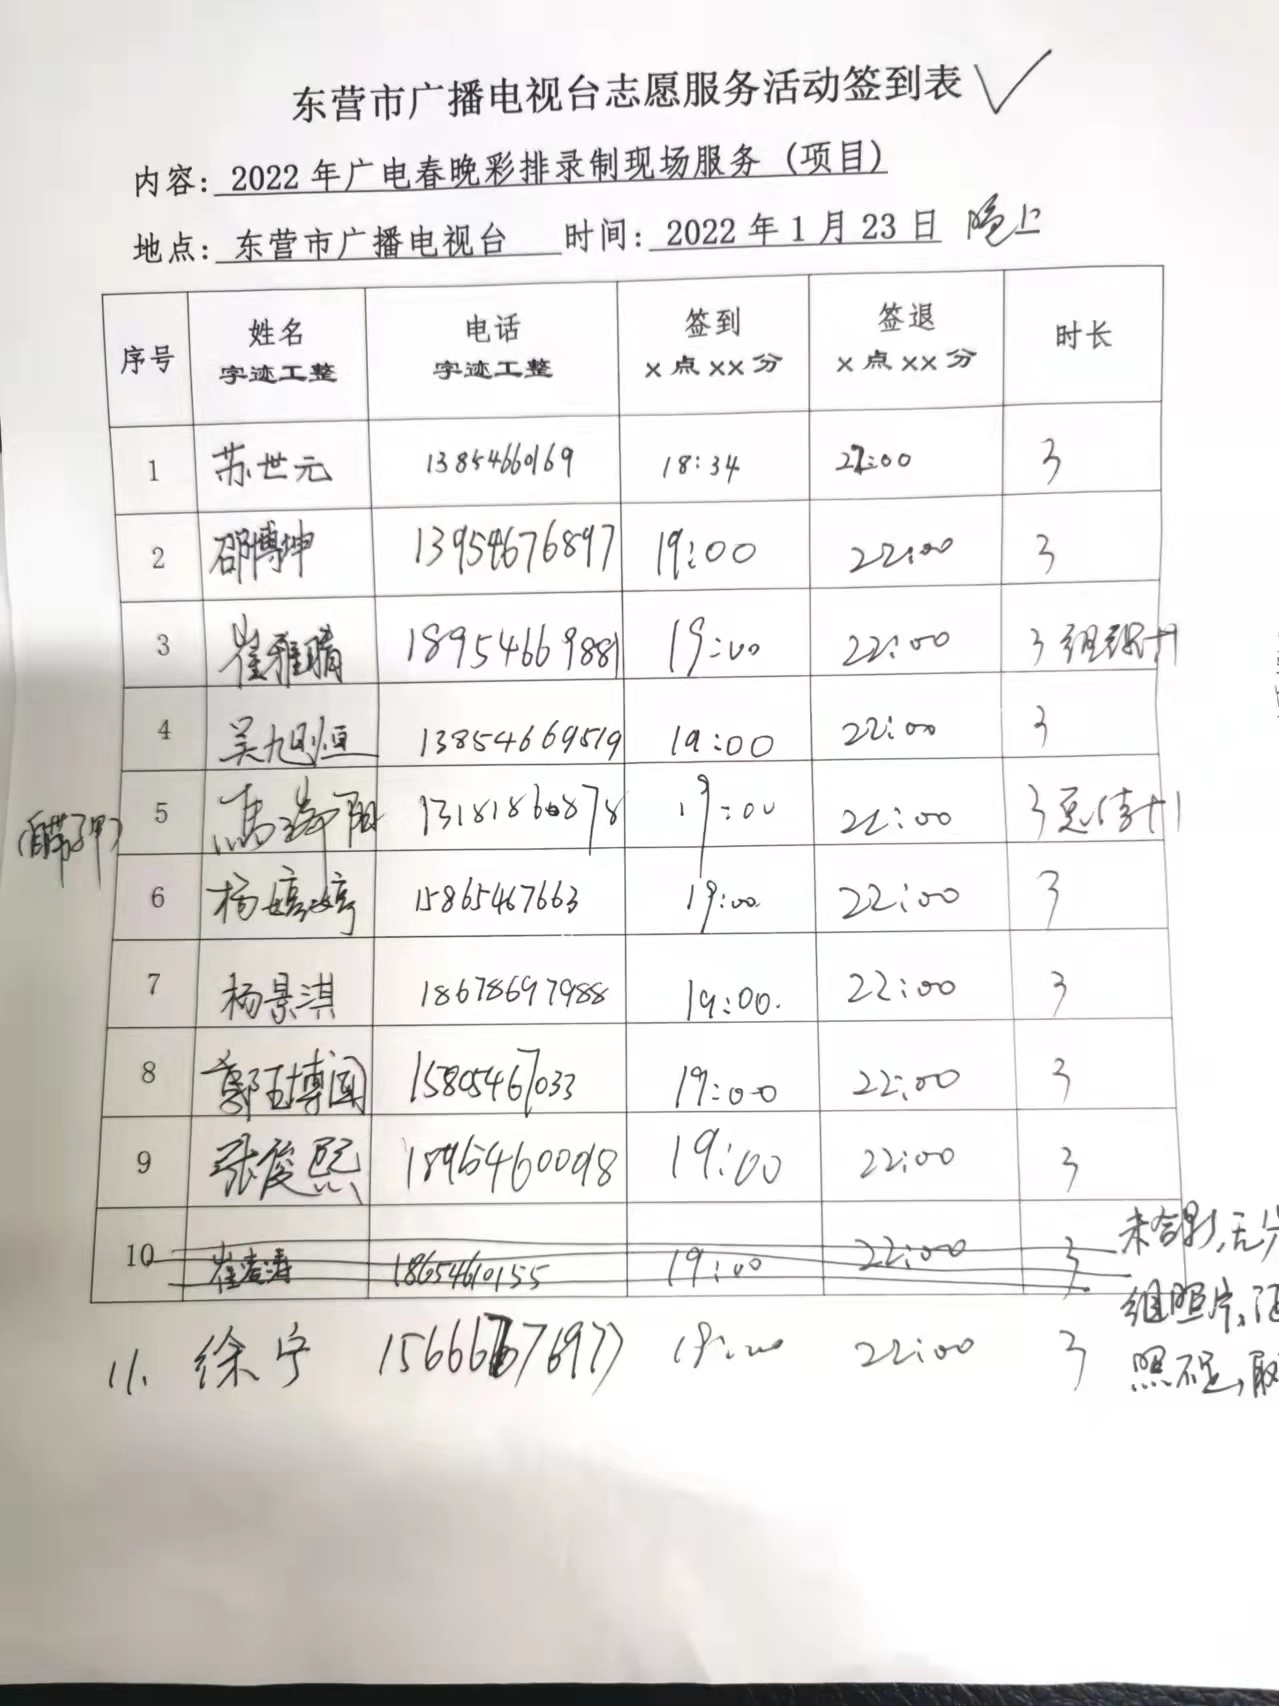 东营市广播电视台志愿服务活动签到表 ✓
内容: 2022 年广电春晚彩排录制现场服务 (项目)
地点: 东营市广播电视台 时间: 2022 年 1 月 23 日 晚上
序号 姓名 字迹工整 电话 字迹工整 签到 x 点 xx 分 签退 x 点 xx 分 时长
1 苏世元 13854660169 18:34 22:00 3
2 邵博坤 13954676897 19:00 22:00 3
3 崔雅晴 18954669881 19:00 22:00 3 组织+1
4 吴旭恒 13854669519 19:00 22:00 3
5 13181860878 19:00 22:00 3
6 杨婷婷 15865467663 19:00 22:00 3
7 杨景淇 18678697988 19:00. 22:00 3
8 郭玉博闻 15805467033 19:00 22:00 3
9 张俊熙 18954600098 19:00 22:00 3
10 18654610155 19:00 22:00 3 未合影,无
组照片,
照不足,取
11. 徐宁 19:00 22:00 3